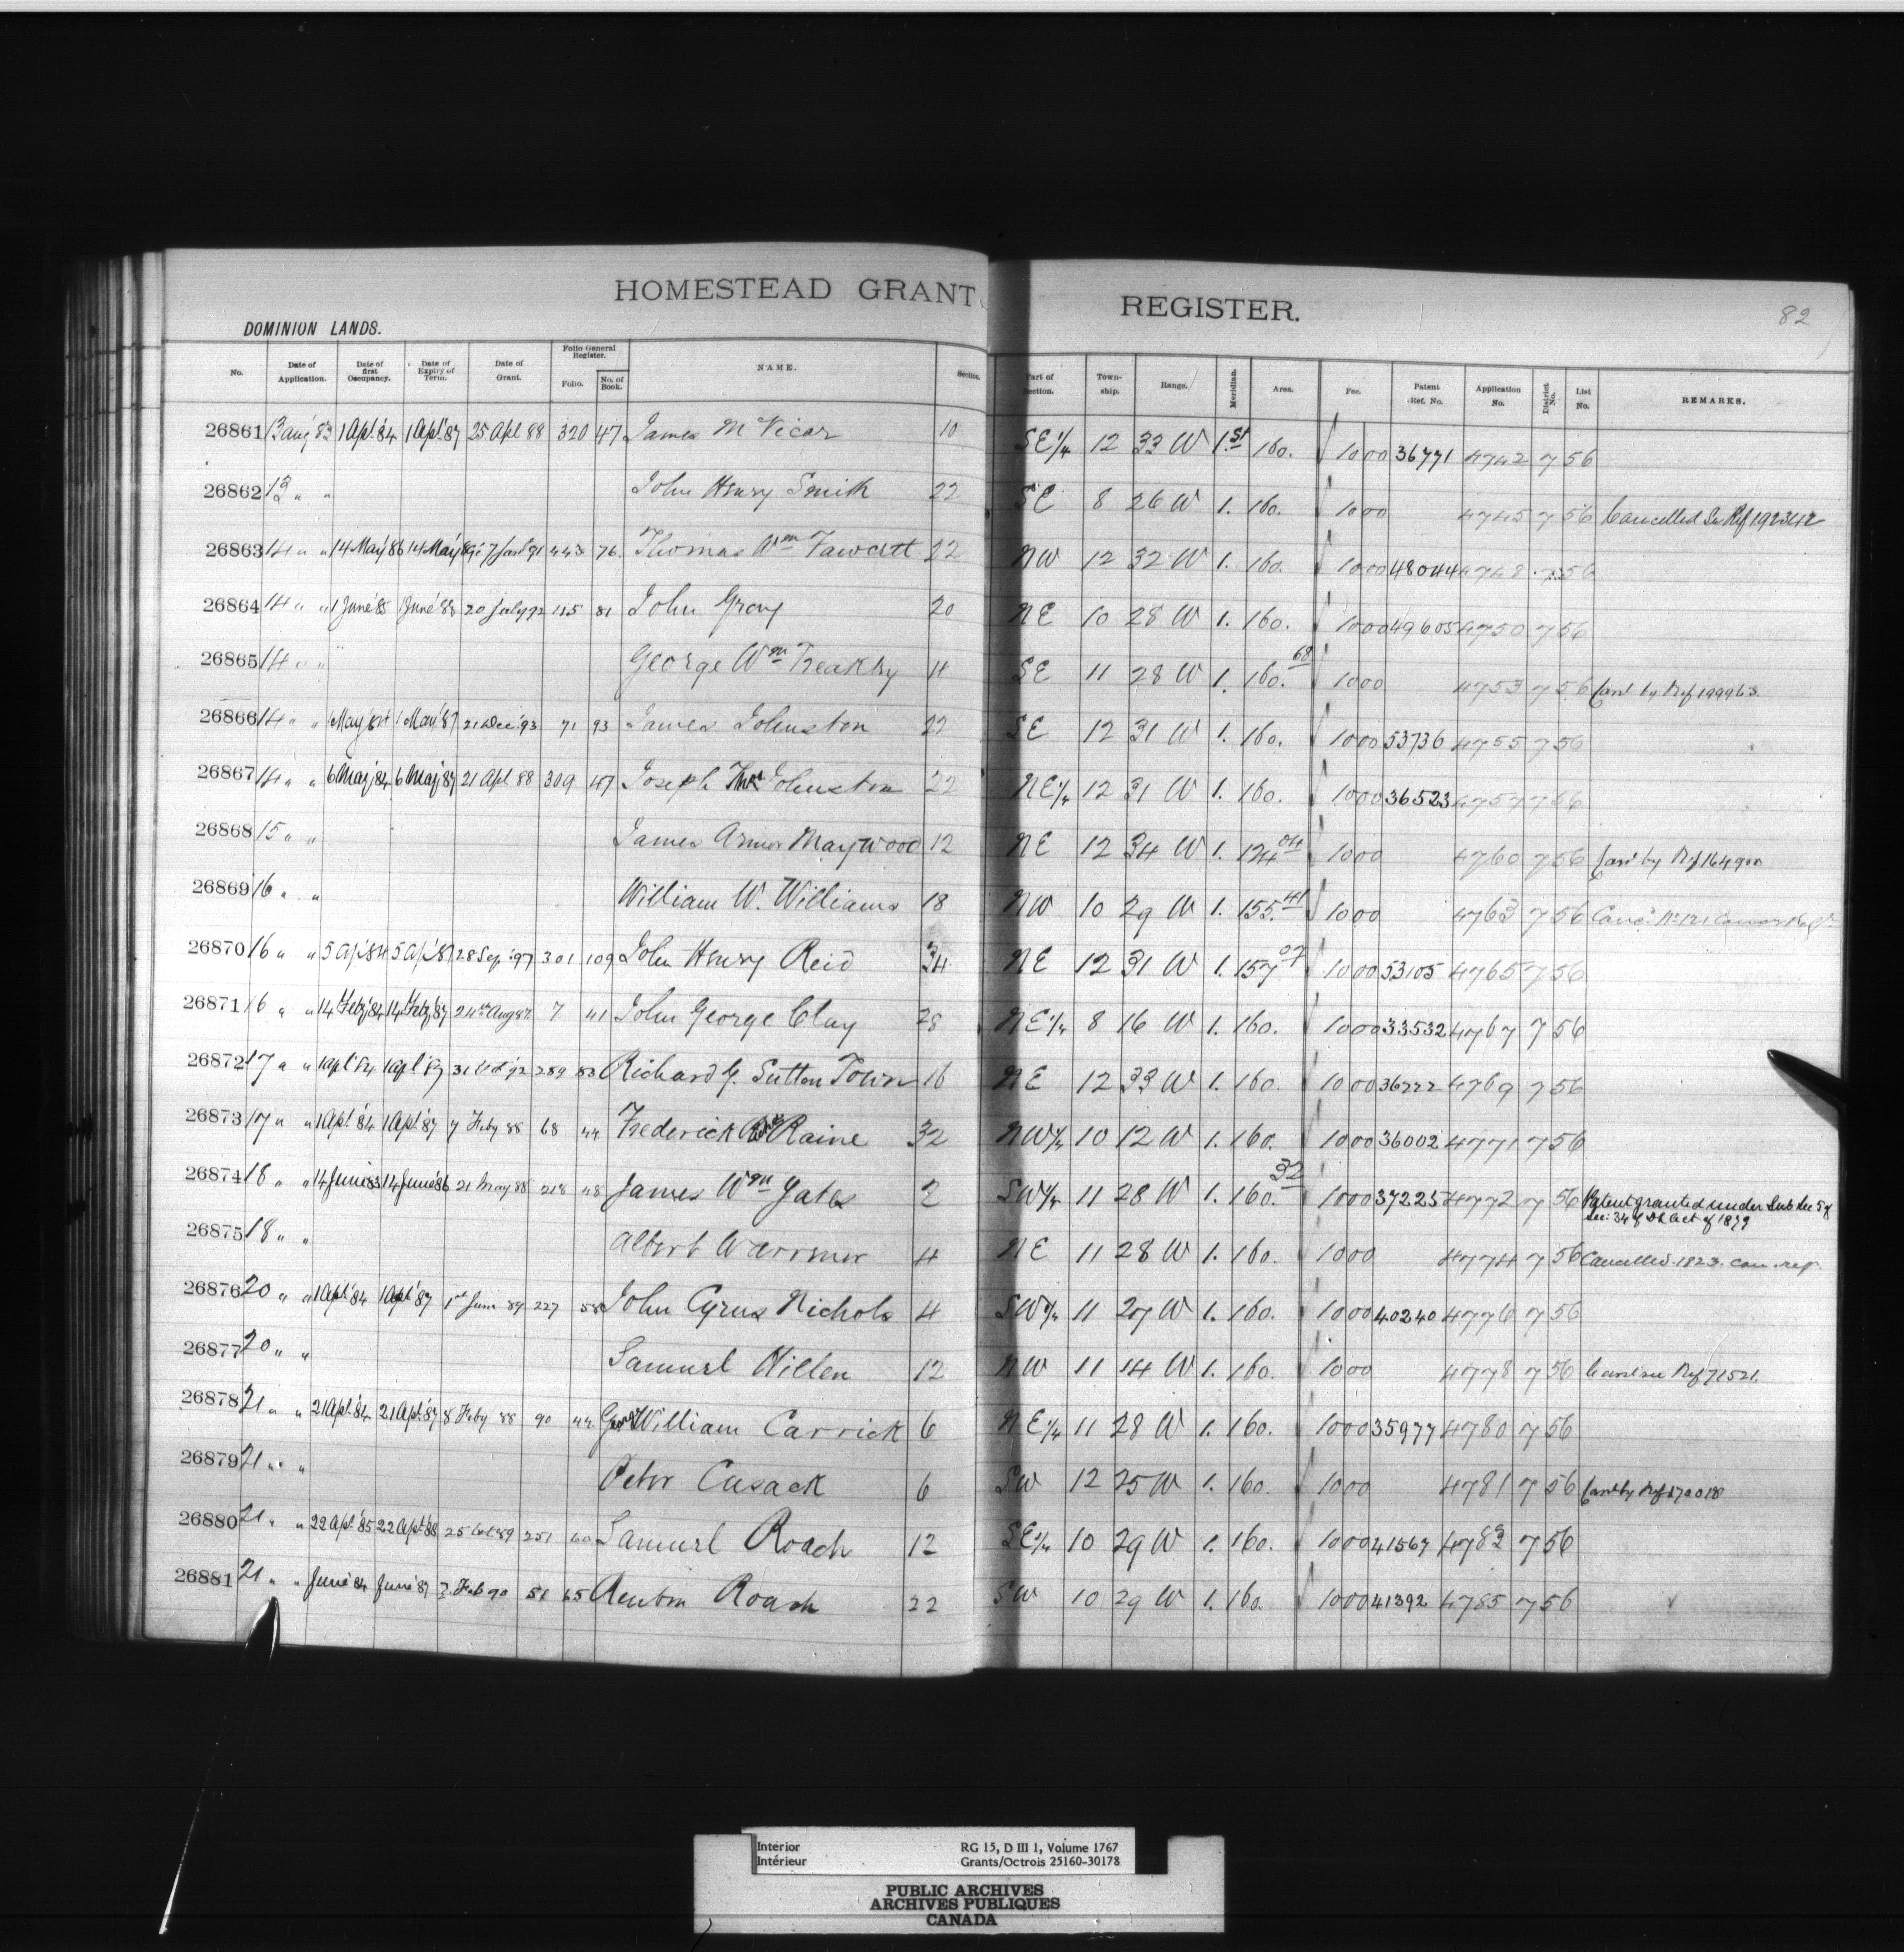 HOMESTEAD GRANT REGISTER.
82
DOMINION LANDS.
No. Date of Application. Date of first Occupancy. Date of Expiry of Term. Date of Grant. Folio General Register. Folio. No. of Book. NAME. Section. Part of Section. Township. Range. Meridian. Area. Fee. Patent Ref. No. Application No. District No. List No. REMARKS.
26861 13 Aug 83 1 Apl '84 1 Apl '87 25 Apl 88 320 47 James McVicar 10 SE 1/4 12 33 W 1.st 160. 1000 36771 4742 7 56
26862 13 " " John Henry Smith 22 SE 8 26 W 1. 160. 1000 4745 7 56 Cancelled See Ref 192342
26863 14 " " 14 May '86 14 May '89 7 Jan 91 443 76. Thomas Wm Fawcett 22 NW 12 32 W 1. 160. 1000 48044 4748 7 56
26864 14 " " 1 June '85 1 June '88 20 July 92 115 81 John Gray 20 NE 10 28 W 1. 160. 1000 49605 4750 7 56
26865 14 " " George Wm 4 SE 11 28 W 1. 160.68 1000 4753 7 56 Canl by Ref 199963
26866 14 " " 1 May '84 1 May '87 21 Dec '93 71 93 James Johnston 22 SE 12 31 W 1. 160. 1000 53736 4755 7 56
26867 14 " " 6 May '84 6 May '87 21 Apl 88 309 47 Joseph Thos Johnston 22 NE 1/4 12 31 W 1. 160. 1000 36523 4757 7 56
26868 15 " " James Maywood 12 NE 12 34 W 1. 124.04 1000 4760 7 56 Canl by Ref 164900
26869 16 " " William W. Williams 18 NW 10 29 W 1. 155.41 1000 4763 7 56
26870 16 " " 5 Apl '84 5 Apl '87 28 Sep '97 301 109 John Henry Reid 34 NE 12 31 W 1. 157.07 1000 53105 4765 7 56
26871 16 " " 14 Feby '84 14 Feby '87 24th Aug 87 7 41 John George Clay 28 NE 1/4 8 16 W 1. 160. 1000 33532 4767 7 56
26872 17 " " 1 Apl '84 1 Apl '87 31 Oct '92 289 83 Richard G. Sutton Town 16 NE 12 33 W 1. 160. 1000 36222 4769 7 56
26873 17 " " 1 Apl '84 1 Apl '87 7 Feby 88 68 44 Frederick Raine 32 NW 1/4 10 12 W 1. 160. 1000 36002 4771 7 56
26874 18 " " 14 June '83 14 June '86 21 May 88 218 48 James Wm Yates 2 SW 1/4 11 28 W 1. 160.32 1000 37225 4772 7 56 Patent granted under Sub Sec 5 of
Sec: 34 of DL Act of 1879
26875 18 " " Albert Warriner 4 NE 11 28 W 1. 160. 1000 4774 7 56 Cancelled 1823 can. rep.
26876 20 " " 1 Apl '84 1 Apl '87 1st June 89 227 58 John Cyrus Nichols 4 SW 1/4 11 27 W 1. 160. 1000 40240 4776 7 56
26877 20 " " Samuel Killen 12 NW 11 14 W 1. 160. 1000 4778 7 56 Canl see Ref 71521
26878 21 " " 21 Apl '84 21 Apl '87 8 Feby 88 90 44 George William Carrick 6 NE 1/4 11 28 W 1. 160. 1000 35977 4780 7 56
26879 21 " " Peter Cusack 6 SW 12 25 W 1. 160. 1000 4781 7 56 Canl by Ref
26880 21 " " 22 Apl '85 22 Apl '88 25 Oct 89 251 60 Samuel Roach 12 SE 1/4 10 29 W 1. 160. 1000 41567 4783 7 56
26881 21 " " June '84 June '87 Feb 90 51 65 Reuben Roach 22 SW 10 29 W 1. 160. 1000 41392 4785 7 56
Interior RG 15, D III 1, Volume 1767
Intérieur Grants/Octrois 25160-30178
PUBLIC ARCHIVES
ARCHIVES PUBLIQUES
CANADA